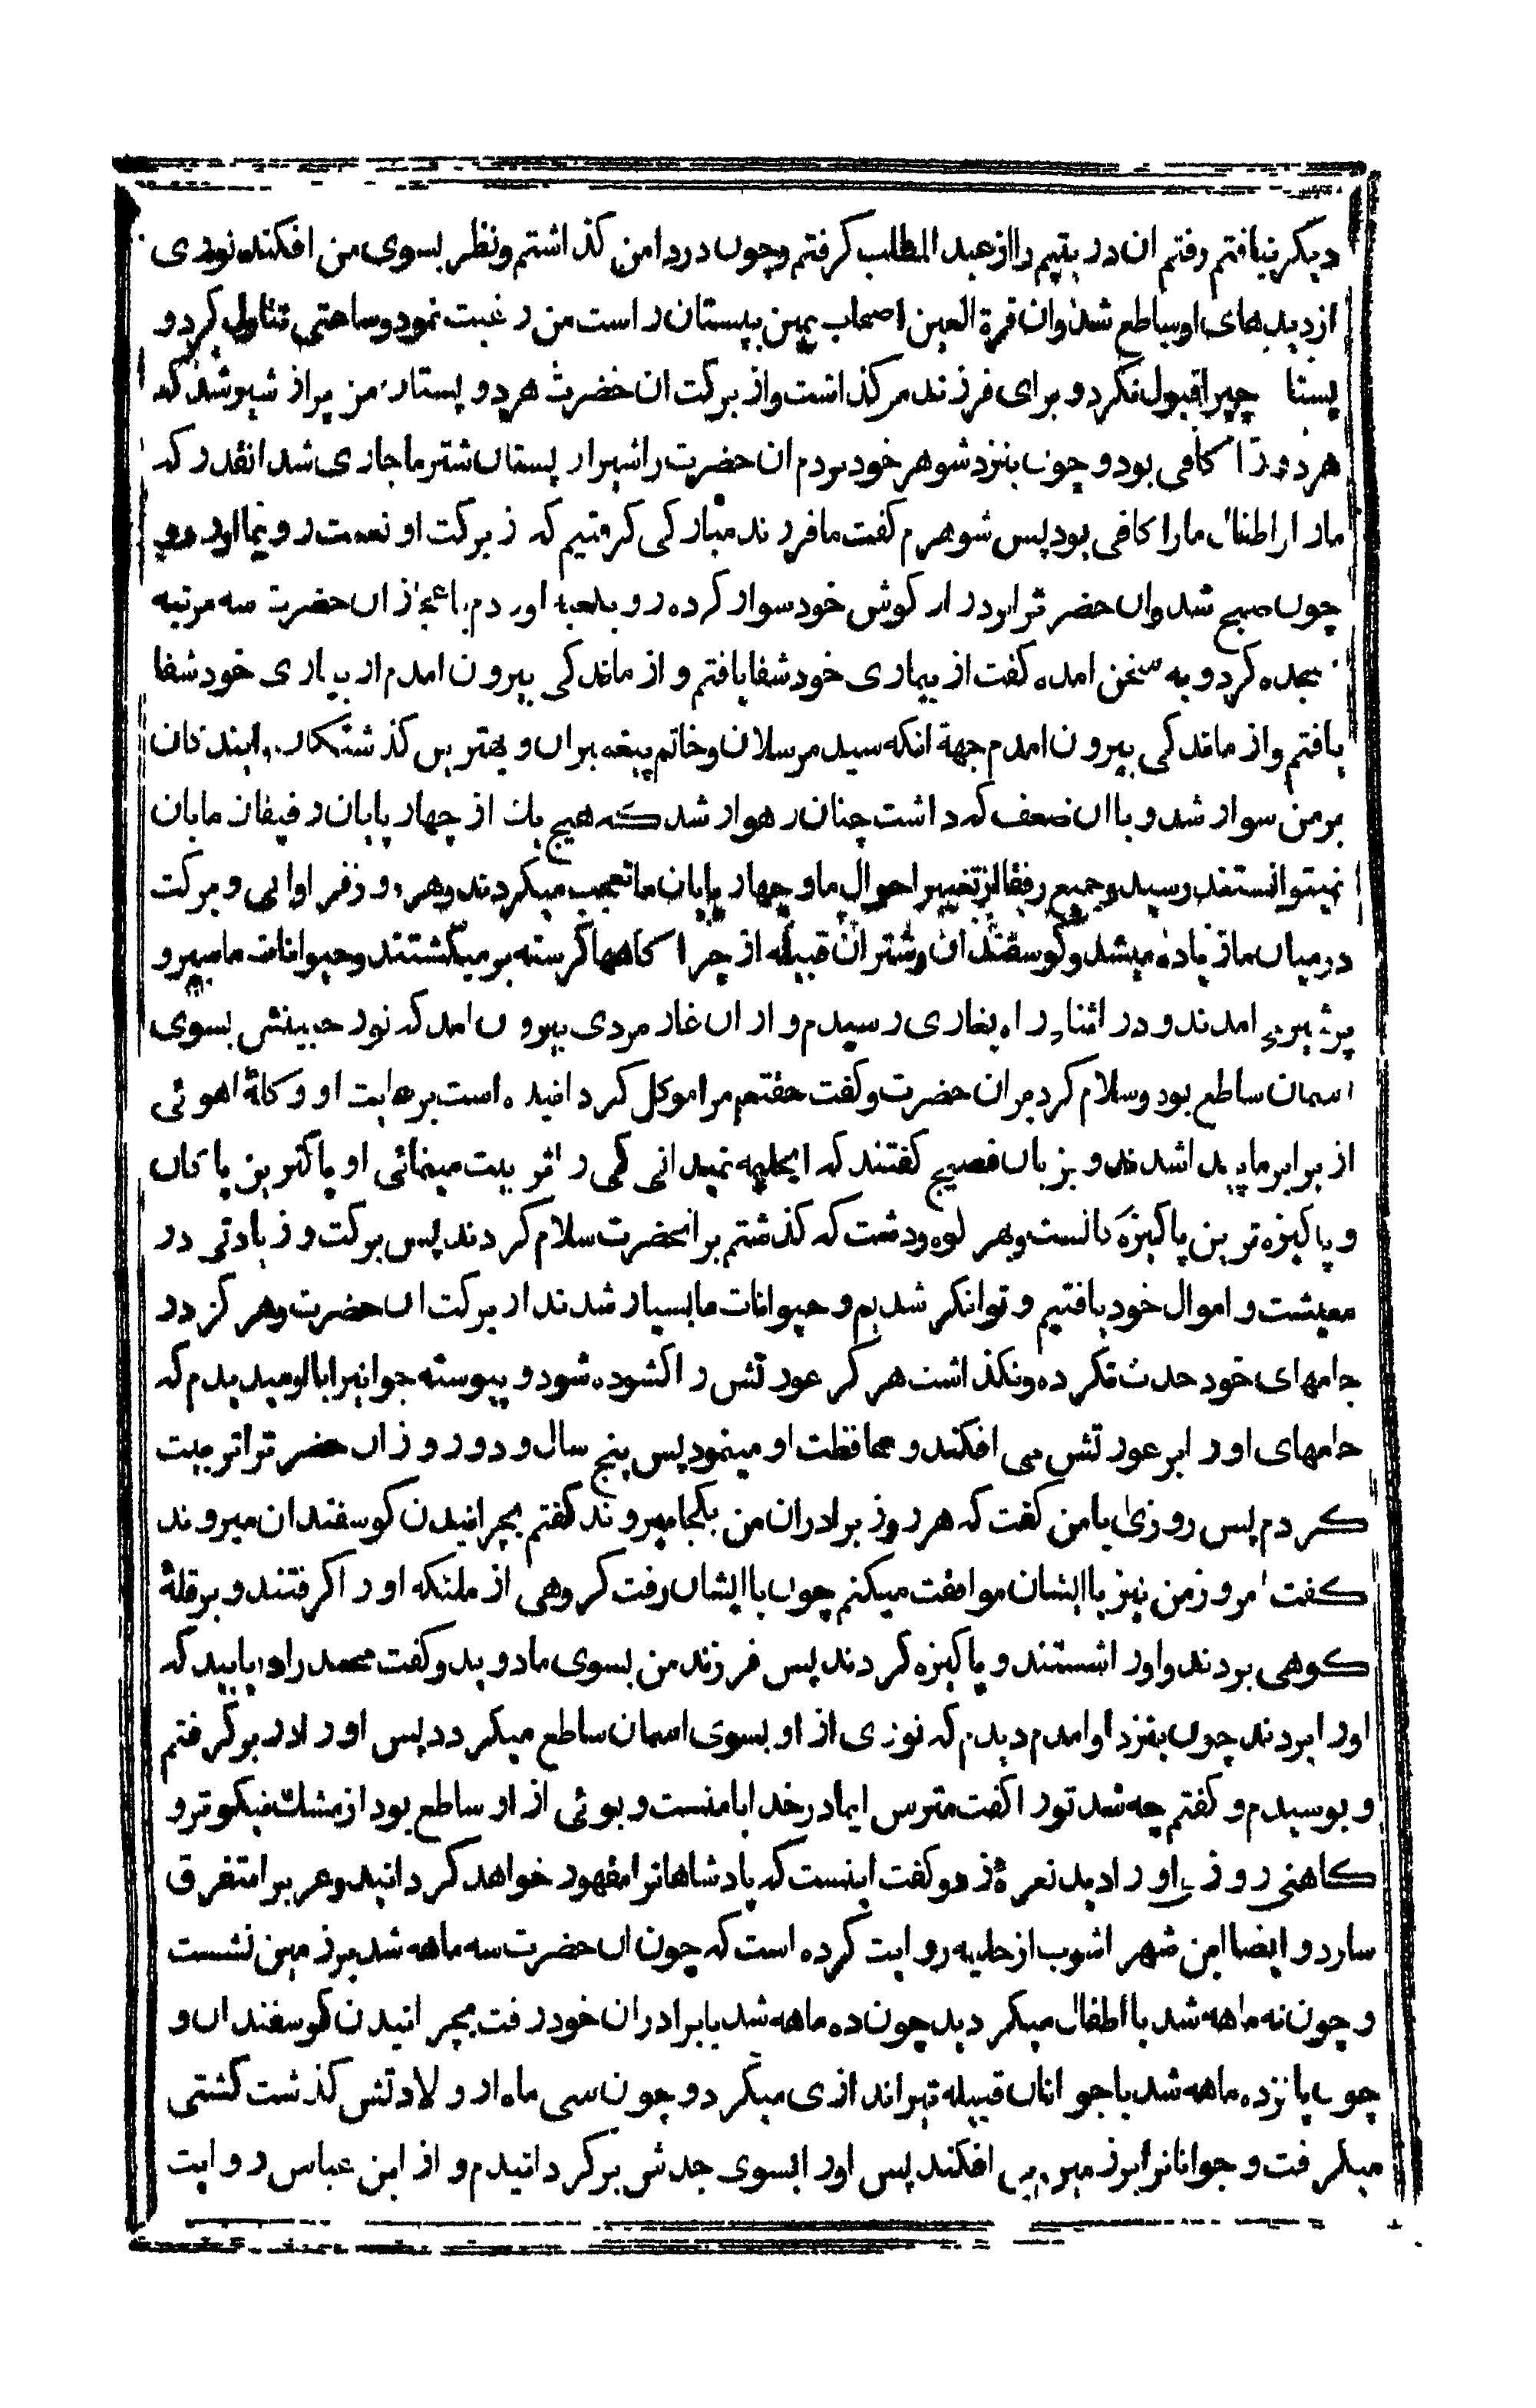 دیکر نیافتم رفتم ان در یتیم را از عبد المطلب کرفتم و چون در دامن کذاشتم و نظر بسوی من افکند نوری
از دیدهای او ساطع شد و ان قرة العین اصحاب یمین بپستان راست من رغبت نمود و ساعتی تناول کرد و
پستا چپ را قبول نکرد و برای فرزند مر کذاشت و از برکت ان حضرت هر دو پستان من پر از شیر شد که
هر دو را کافی بود و چون بنزد شوهر خود بردم ان حضرت را شیر از پستان شتر ما جاری شد انقدر که
ما را و اطفال ما را کافی بود پس شوهرم کفت ما فرزند مبارکی کرفتیم که از برکت او نعمت رو بما اورد و
چون صبح شد و ان حضرترا بر دراز کوش خود سوار کرده رو بکعبه اوردم باعجاز ان حضرت سه مرتبه
سجده کرد و به سخن امده کفت از بیماری خود شفا یافتم و از ماندکی بیرون امدم از بیماری خود شفا
یافتم و از ماندکی بیرون امدم جهة انکه سید مرسلان و خاتم پیغمبران و بهترین کذشتکان و ایندکان
بر من سوار شد و با ان ضعف که داشت چنان رهوار شد که هیچ یک از چهار پایان رفیقان ما بان
نمیتوانستند رسید و جمیع رفقا از تغییر احوال ما و چهار پایان ما تعجب میکردند و هر روز فراوانی و برکت
در میان ما زیاده میشد و کوسفندان و شتران قبیله از چراکاهها کرسنه بر میکشتند و حیوانات ما سیر و
پر شیر می امدند و در اثناء راه بغاری رسیدم و از ان غار مردی بیرون امد که نور جبینش بسوی
اسمان ساطع بود و سلام کرد بر ان حضرت و کفت حقتعم مرا موکل کردانیده است برعایت او و کلهٔ اهوئی
از برابر ما پیدا شدند و بزبان فصیح کفتند که ایحلیمه نمیدانی کی را تربیت مینمائی او پاکترین پاکان
و پاکیزه ترین پاکیزه کانست و بهر کوه و دشت که کذشتم بر انحضرت سلام کردند پس برکت و زیادتی در
معیشت و اموال خود یافتیم و توانکر شدیم و حیوانات ما بسیار شدند از برکت ان حضرت و هر کز در
جامهای خود حدث نکرده و نکذاشت هر کز عورتش را کشوده شود و پیوسته جوانیرا با او میدیدم که
جامهای او را بر عورتش می افکند و محافظت او مینمود پس پنج سال و دو روز ان حضرترا تربیت
کردم پس روزی با من کفت که هر روز برادران من بکجا میروند کفتم بچرانیدن کوسفندان میروند
کفت امروز من نیز با ایشان موافقت میکنم چون با ایشان رفت کروهی از ملئکه او را کرفتند و بر قلهٔ
کوهی بردند و او را شستند و پاکیزه کردند پس فرزند من بسوی ما دوید و کفت محمد را دریابید که
او را بردند چون بنزد او امدم دیدم که نوری از او بسوی اسمان ساطع میکردد پس او را در بر کرفتم
و بوسیدم و کفتم چه شد تو را کفت مترس ایمادر خدا با منست و بوئی از او ساطع بود از مشک نیکوتر و
کاهنی روزی او را دید نعرهٔ زد و کفت اینست که پادشاهانرا مقهور خواهد کردانید و عربرا متفرق
سازد و ایضا ابن شهر اشوب از حلیمه روایت کرده است که چون ان حضرت سه ماهه شد بر زمین نشست
و چون نه ماهه شد با اطفال میکردید چون ده ماهه شد با برادران خود رفت بچرانیدن کوسفندان و
چون پانزده ماهه شد با جوانان قبیله تیراندازی میکرد و چون سی ماه از ولادتش کذشت کشتی
میکرفت و جوانانرا بر زمین می افکند پس او را بسوی جدش برکردانیدم و از ابن عباس روایت